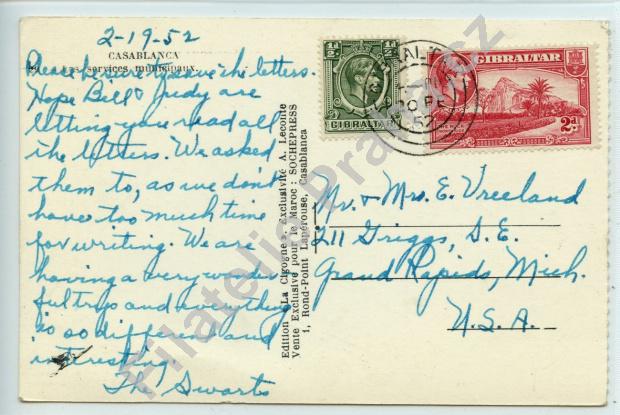 2-19-52
CASABLANCA
Les services municipaux.
Please be sure to save the letters.
Hope Bill & Judy are
letting you read all
the letters. We asked
them to, as we don't
have too much time
for writing. We are
having a very wonder-
ful trip and everything
is so different and
interesting.
The Swarts
Edition "La Cigogne", Exclusivité A. Leconte
Vente Exclusive pour le Maroc : SOCHEPRESS
1, Rond-Point Lapérouse, Casablanca
½d
½d
GIBRALTAR
GIBRALTAR
2d
20 FE
52
Mr. & Mrs. E. Vreeland
211 Griggs, S.E.
Grand Rapids, Mich.
U.S.A.
Filatelie Praha cz